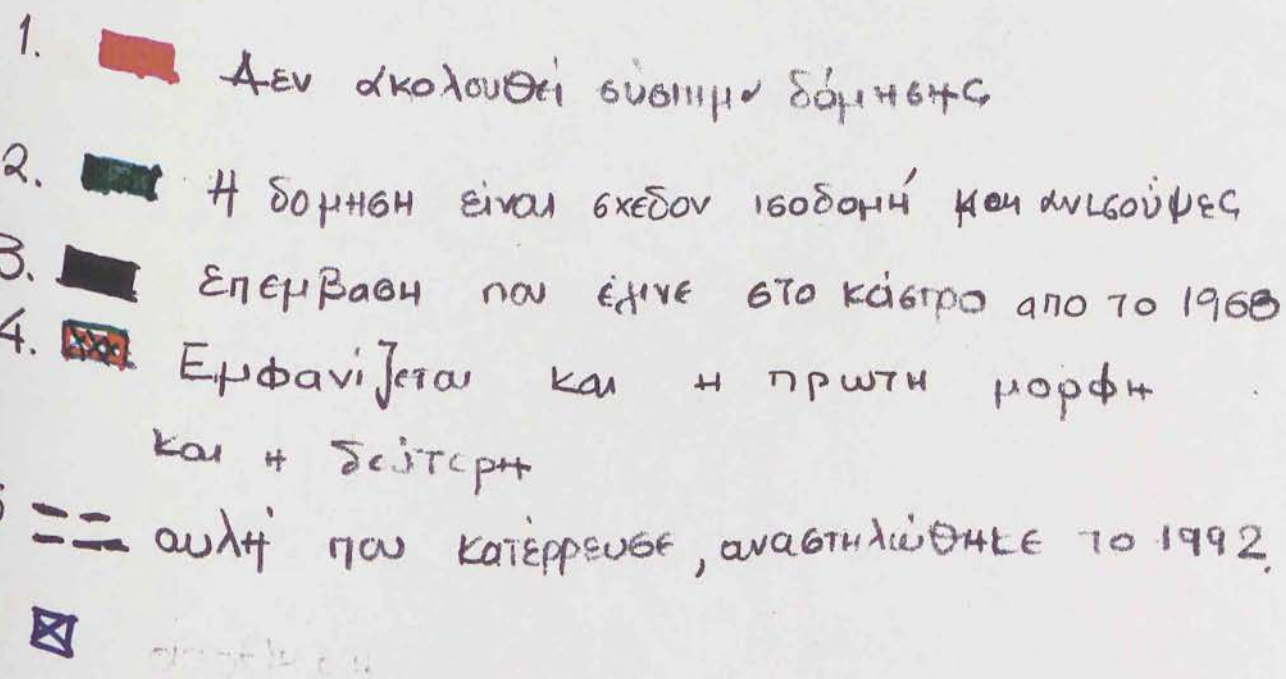 1. Δεν ακολουθεί σύστημα δόμησης
2. Η δομηση είναι σχεδον ισοδομή και ανισούψες
3. Επεμβαση που έγινε στο κάστρο απο το 1968
4. Εμφανίζεται και η πρωτη μορφη
και η δεύτερη
5 αυλή που κατέρρευσε, αναστηλώθηκε το 1992.